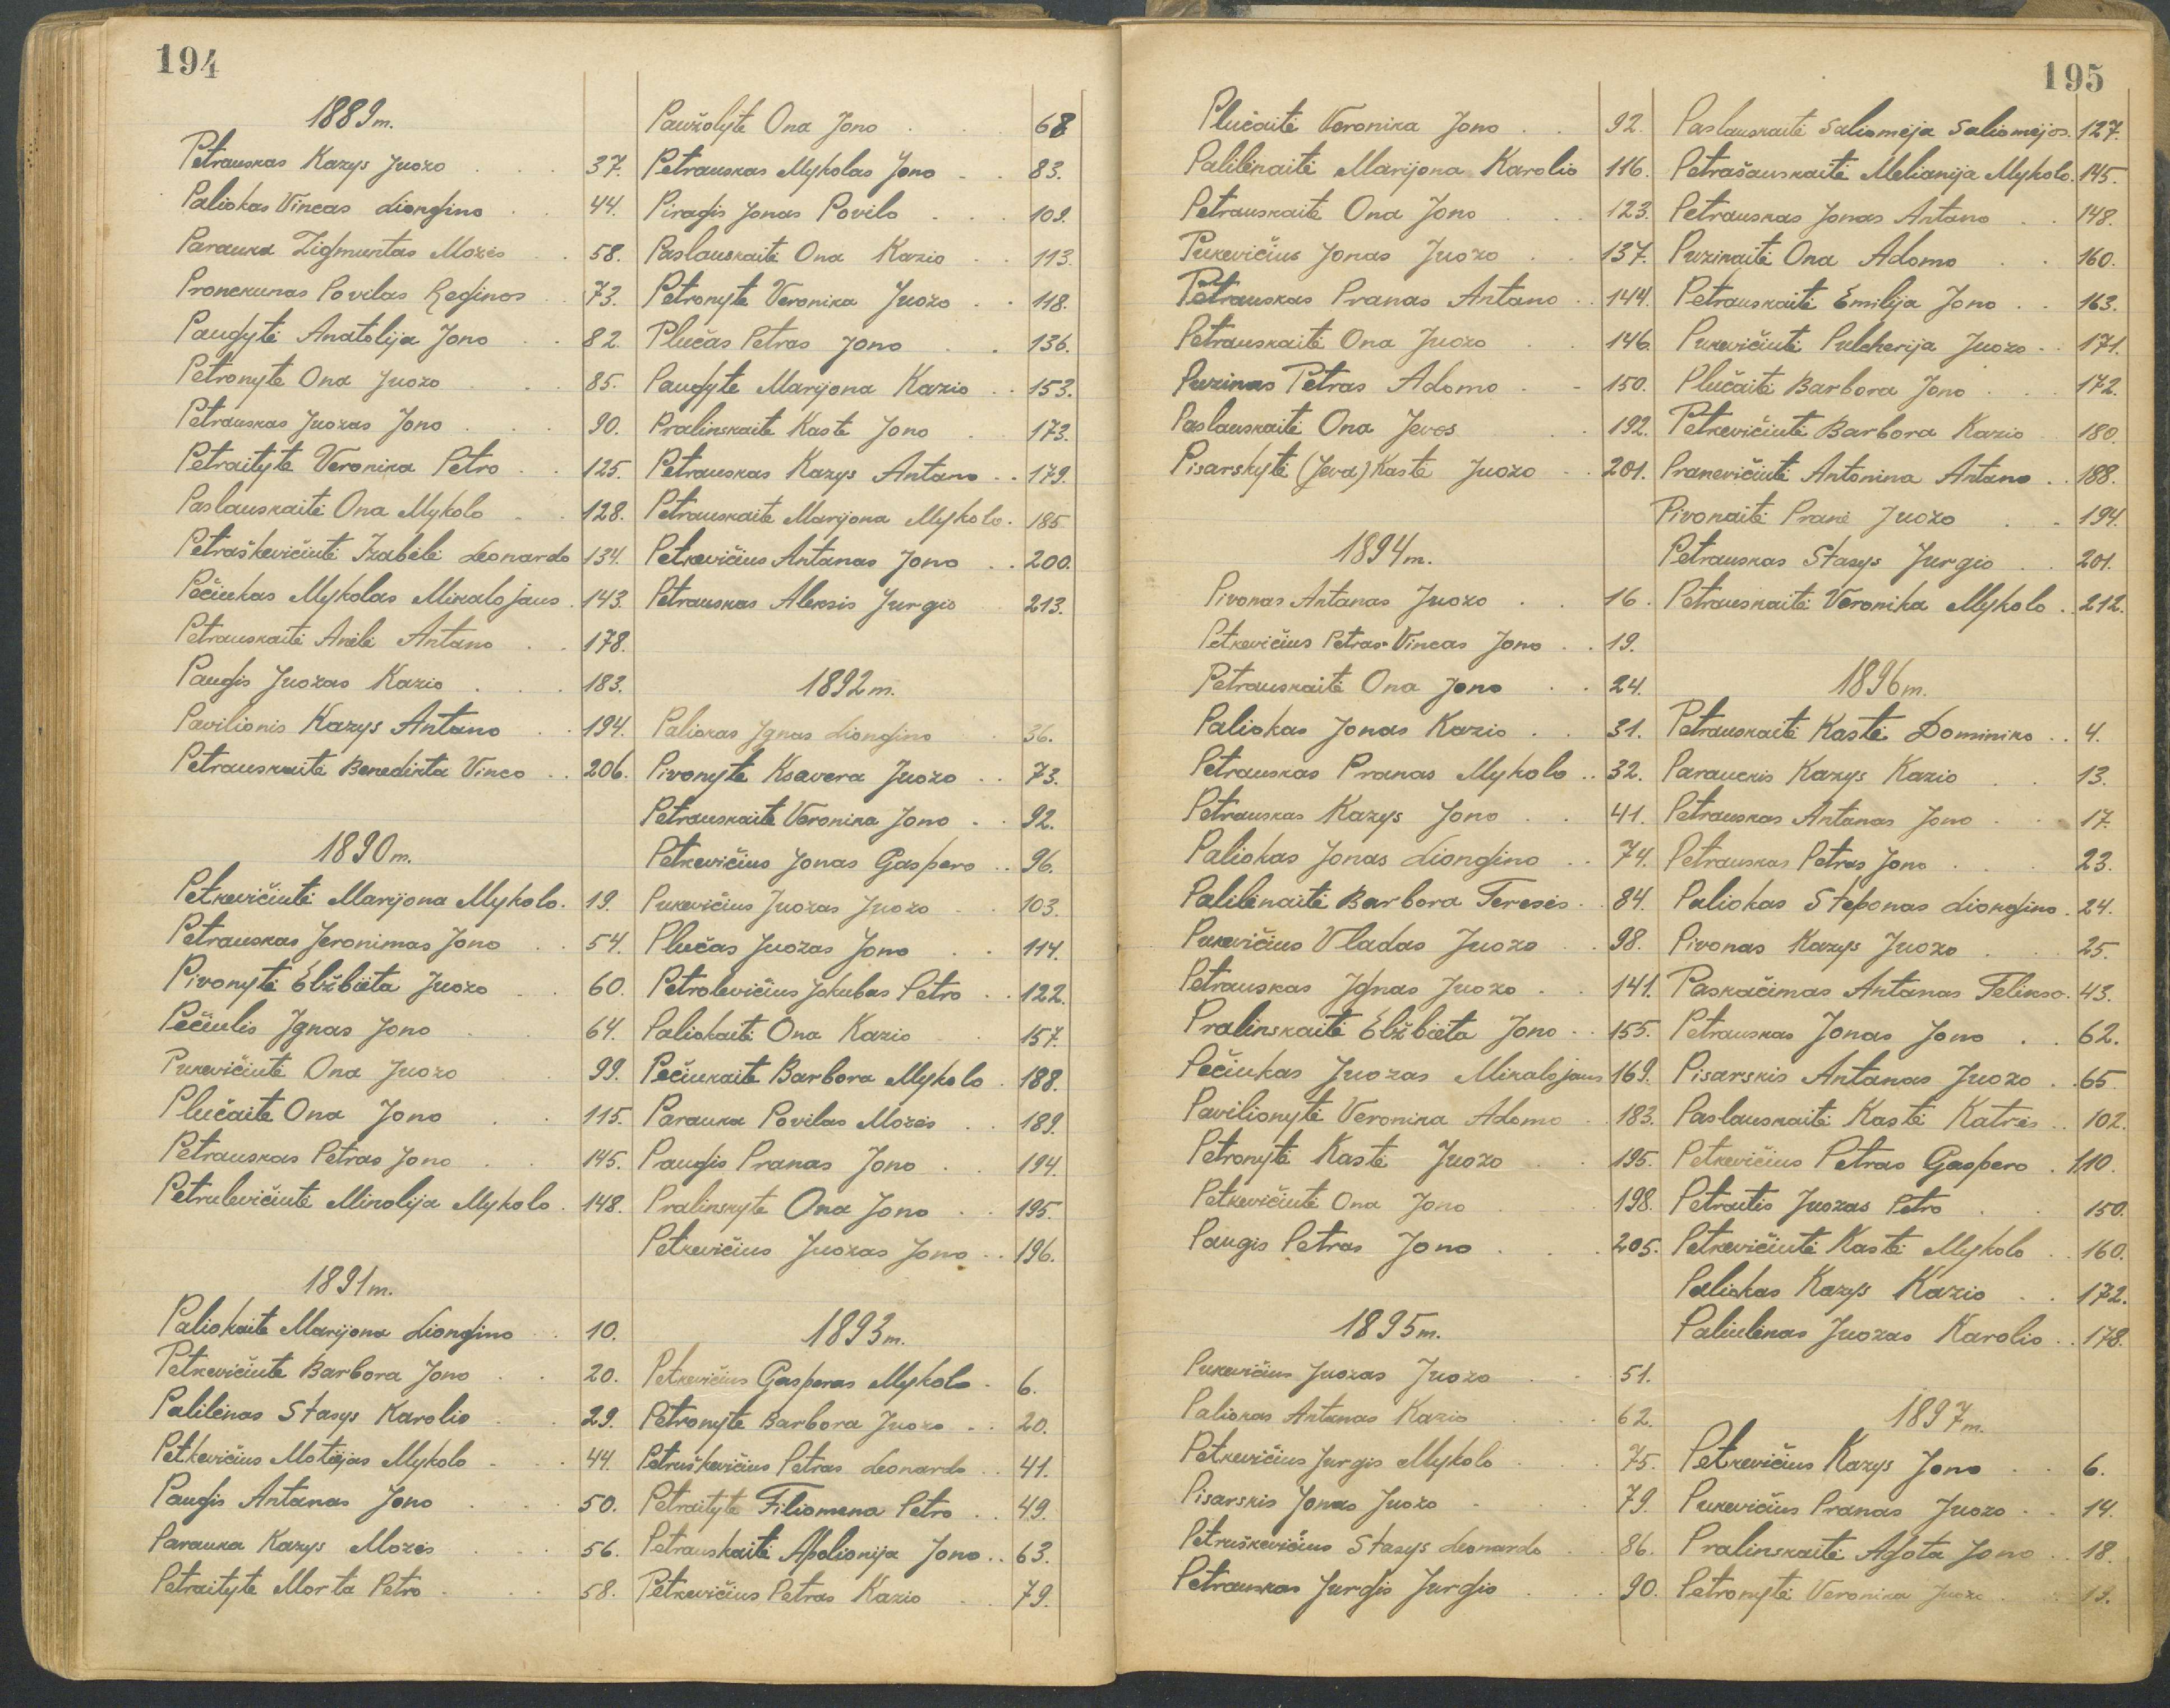 194
1889m.
Petrauskas Kazys Juozo . . . 37.
Paliokas Vincas Liongino . . 44.
Parauka Zigmuntas Mozės . . 58.
Pronckunas Povilas Reginos . . 73.
Paugytė Anatolija Jono . . 82.
Petronytė Ona Juozo . . . 85.
Petrauskas Juozas Jono . . . 90.
Petraitytė Veronika Petro . . 125.
Paslauskaitė Ona Mykolo . . 128.
Petraškevičiutė Izabėlė Leonardo 134.
Pečiukas Mykolas Mikalojaus . 143.
Petrauskaitė Anėlė Antano . . 178.
Paugis Juozas Kazio . . . 183.
Pavilionis Kazys Antano . . 194.
Petrauskaitė Benedikta Vinco . . 206.
1890m.
Petkevičiutė Marijona Mykolo . 19.
Petrauskas Jeronimas Jono . . 54.
Pivonytė Elžbieta Juozo . . 60.
Pečiulis Ignas Jono . . 64.
Pukevičiutė Ona Juozo 99.
Plučaitė Ona Jono . . 115.
Petrauskas Petras Jono . . 145.
Petrulevičiutė Minolija Mykolo . 148.
1891m.
Paliokaitė Marijona Liongino . . 10.
Petkevičiutė Barbora Jono . . 20.
Palilėnas Stasys Karolio . . 29.
Petkevičius Motiejas Mykolo . . . 44.
Paugis Antanas Jono . . . 50.
Parauka Kazys Mozės . . . 56.
Petraitytė Morta Petro . . . 58.
Paužolytė Ona Jono . . . 68
Petrauskas Mykolas Jono . . 83.
Piragis Jonas Povilo . . . 109.
Paslauskaitė Ona Kazio . . 113.
Petronytė Veronika Juozo . . 118.
Plučas Petras Jono . . 136.
Paugytė Marijona Kazio . . 153.
Pralinskaitė Kastė Jono . 173.
Petrauskas Kazys Antano . . 179.
Petrauskaitė Marijona Mykolo . 185
Petkevičius Antanas Jono . . 200.
Petrauskas Aleksis Jurgio 213.
1892m.
Paliokas Ignas Liongino . 36.
Pivonytė Ksavera Juozo . . 73.
Petrauskaitė Veronika Jono . . 92.
Petkevičius Jonas Gaspero . . 96.
Pukevičius Juozas Juozo . . 103.
Plučas Juozas Jono . . 114.
Petrolevičius Jokubas Petro . . 122.
Paliokaitė Ona Kazio . 157.
Pečiukaitė Barbora Mykolo . 188.
Parauka Povilas Mozės . . 189.
Paugis Pranas Jono . . 194.
Pralinskytė Ona Jono . . 195.
Petkevičius Juozas Jono . . 196.
1893m.
Petkevičius Gasperas Mykolo . 6.
Petronytė Barbora Juozo . . 20.
Petruškevičius Petras Leonardo . . 41.
Petraitytė Filiomena Petro . . 49.
Petrauskaitė Apolionija Jono . . 63.
Petkevičius Petras Kazio . . 79.
195
Plučaitė Veronika Jono . . 92.
Palilėnaitė Marijona Karolio 116.
Petrauskaitė Ona Jono . . . 123.
Pukevičius Jonas Juozo . . 137.
Petrauskas Pranas Antano . . 144.
Petrauskaitė Ona Juozo . . 146.
Puzinas Petras Adomo . . 150.
Paslauskaitė Ona Jevos . . 192.
Pisarskytė (Jeva) Kastė Juozo . . 201.
1894m.
Pivonas Antanas Juozo . . 16.
Petkevičius Petras-Vincas Jono . . 19.
Petrauskaitė Ona Jono . . 24.
Paliokas Jonas Kazio . . 31.
Petrauskas Pranas Mykolo . . 32.
Petrauskas Kazys Jono . . 41.
Paliokas Jonas Liongino . . 74.
Palilėnaitė Barbora Teresės . . 84.
Pukevičius Vladas Juozo . . 98.
Petrauskas Ignas Juozo . . 141.
Pralinskaitė Elžbieta Jono . . 155.
Pečiukas Juozas Mikalojaus 169.
Pavilionytė Veronika Adomo . 183.
Petronytė Kastė Juozo . . 195.
Petkevičiutė Ona Jono . . 198.
Paugis Petras Jono . . . 205.
1895m.
Pukevičius Juozas Juozo . . 51.
Paliokas Antanas Kazio . . . 62.
Petkevičius Jurgis Mykolo . . . 75.
Pisarskis Jonas Juozo . . . 79.
Petruškevičius Stasys Leonardo . . 86.
Petrauskas Jurgis Jurgio . . . 90.
Paslauskaitė Saliomėja Saliomėjos . 127.
Petrašauskaitė Melianija Mykolo . 145.
Petrauskas Jonas Antano . . 148.
Puzinaitė Ona Adomo . . 160.
Petrauskaitė Emilija Jono . . 163.
Pukevičiutė Pulcherija Juozo . . 171.
Plučaitė Barbora Jono . . . 172.
Petkevičiutė Barbora Kazio . 180.
Prankevičiutė Antonina Antano . . 188.
Pivonaitė Pranė Juozo . . 194.
Petrauskas Stasys Jurgio . . 201.
Petrauskaitė Veronika Mykolo . . 212.
1896m.
Petrauskaitė Kastė Dominiko . . 4.
Parauckis Kazys Kazio . . 13.
Petrauskas Antanas Jono . . 17.
Petrauskas Petras Jono . . . 23.
Paliokas Steponas Liongino . 24.
Pivonas Kazys Juozo . . . 25.
Paskačimas Antanas Felikso . 43.
Petrauskas Jonas Jono . . 62.
Pisarskis Antanas Juozo . . 65.
Paslauskaitė Kastė Katrės . . 102.
Petkevičius Petras Gaspero . 110.
Petraitis Juozas Petro . . 150.
Petkevičiutė Kastė Mykolo . . 160.
Paliokas Kazys Kazio . . 172.
Paliulėnas Juozas Karolio . . 178.
1897m.
Petkevičius Kazys Jono . . 6.
Pukevičius Pranas Juozo . . 14.
Pralinskaitė Agota Jono . . 18.
Petronytė Veronika Juozo . . 19.